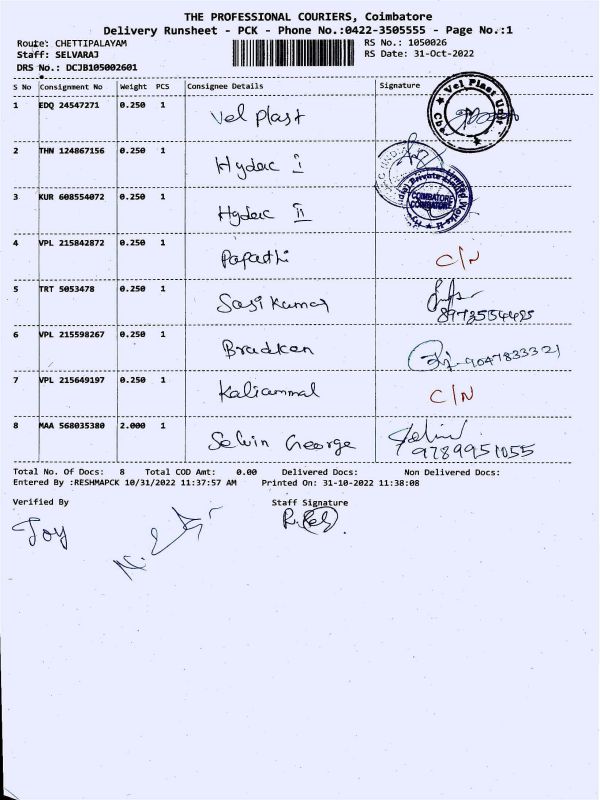 THE PROFESSIONAL COURIERS, Coimbatore
Delivery Runsheet - PCK - Phone No.:0422-3505555 - Page No.:1
Route: CHETTIPALAYAM RS No.: 1050026
Staff: SELVARAJ RS Date: 31-Oct-2022
DRS No.: DCJB105002601
S No Consignment No Weight PCS Consignee Details Signature
1 EDQ 24547271 0.250 1 Vel Plast Vel Plast Unit
2 THN 124867156 0.250 1 Hydac I
3 KUR 608554072 0.250 1 Hydac II Private Limited Works II COIMBATORE
4 VPL 215842872 0.250 1 Papathi C/N
5 TRT 5053478 0.250 1 Sasi Kumar
6 VPL 215598267 0.250 1 Bradken 9047833321
7 VPL 215649197 0.250 1 Kaliammal C/N
8 MAA 568035380 2.000 1 Selvin George 9789951055
Total No. Of Docs: 8 Total COD Amt: 0.00 Delivered Docs: Non Delivered Docs:
Entered By :RESHMAPCK 10/31/2022 11:37:57 AM Printed On: 31-10-2022 11:38:08
Verified By Staff Signature
Joy